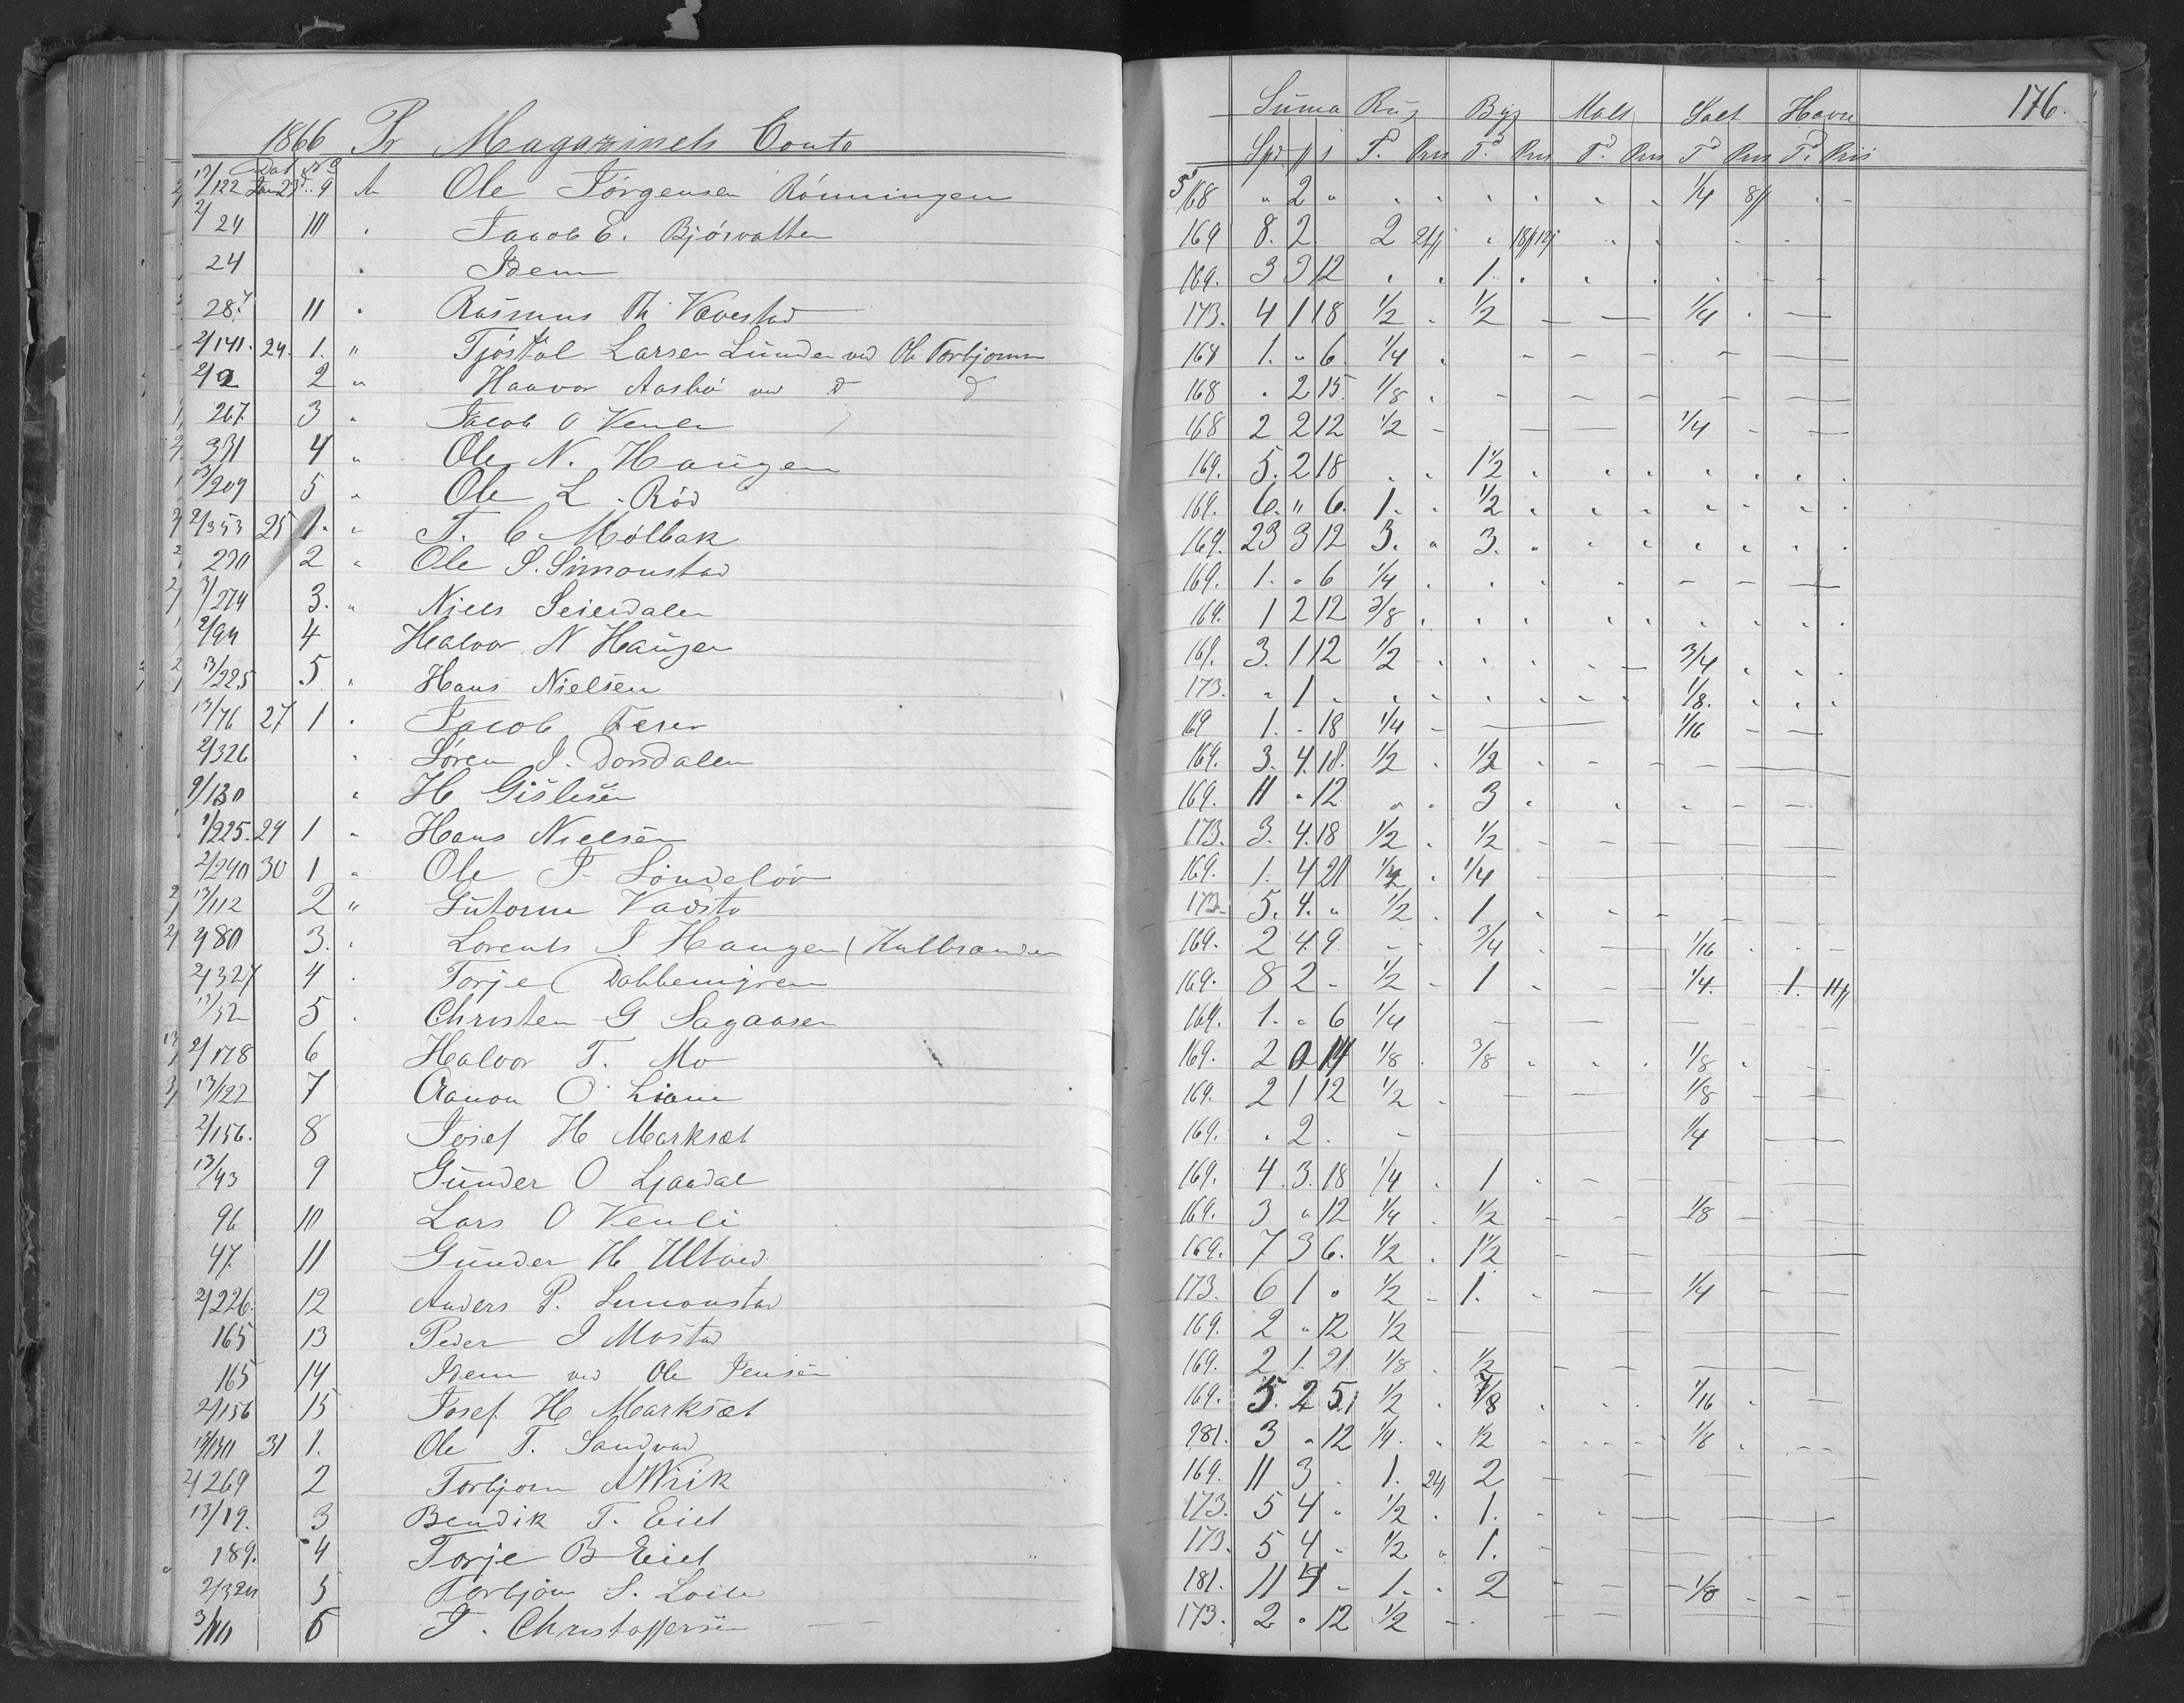 176.
1866 Pr Magazinets Conto Suma Rug Byg Malt Salt Havre
Dat No Spd p s T. Pris Td Pris Td. Pris Td Pris Td. Pris
13/122 Jan 23d.. 9 An Ole Jörgensen Rönningen 168 " 2 " 1/4 8p
2/24 10 " Jacob E. Bjorvatten 169 8. 2 2 24p " 18p12s
24 " Idem 169. 3 3 12 " " 1.
28. 11 " Rasmus Th. Vevestad 173. 4 1 18 1/2 " 1/2 — — 1/4 " —
2/141. 24. 1. " Tjöstol Larsen Lunden ved Ole Torbjornsen 168 1. " 6. 1/4
2/2 2 " Haavor Aasbö ved d d 168 " 2 15. 1/8
267 3 " Jacob O Venli 168 2 2 12 1/2 - — — 1/4 - —
331 4 " Ole N. Haugen 169. 5. 2 18 " " 1 1/2
13/209 5 " Ole L. Röd 169. 6. " 6. 1. " 1/2
2/353 25 1. " T. C. Mölbak 169. 23 3 12 3. " 3.
230 2 " Ole S. Simonstad 169. 1. " 6 1/4
3/274 3. " Niels Seierdalen 169. 1 2 12 3/8
2/94 4 Halvor N Haugen 169. 3. 1 12 1/2 3/4
13/225 5 " Hans Nielsen 173. " 1 " 1/8.
13/76 27 1 " Jacob Feren 169 1. - 18 1/4 - — 1/16 - —
2/326 " Sören J. Dorsdalen 169. 3. 4. 18. 1/2 " 1/2
2/130 " H Gislesen 169. 11 " 12 " " 3
1/225. 29 1 " Hans Nielsen 173 3. 4. 18 1/2 " 1/2
2/240 30 1 " Ole J. Löndelöv 169. 1. 4 21 1/4
13/112 2 " Gutorm Vadsto 173. 5. 4. " 1/2 . 1
2/80 3. " Lorents J Haugen (Kalvsanden 169. 2 4 9 - - 3/4 " — 1/16
2/327 4 " Torje Dabbemyren 169. 8 2 - 1/2 - 1 - — 1/4. 1. 11p
13/52 5 " Christen G Sagaasen 169. 1. " 6 1/4
2/178 6 Halvor T. Mo 169. 2 0 14 1/8 . 3/8 1/8
13/122 7 Aanon O Liane 169. 2 1 12 1/2 - — — 1/8
2/156. 8 Josef H Marksæt 169. " 2 . - — 1/4
13/43 9 Gunder O Ljaadal 169. 4. 3. 18 1/4 . 1
96 10 Lars O Venli 169. 3 " 12 1/4 . 1/2 - — 1/8
47. 11 Gunder H Ultved 169. 7 3 6. 1/2 . 1 1/2
2/226. 12 Anders P. Simonstad 173. 6 1 " 1/2 - 1. - — 1/4
165 13 Peder J Mostad 169. 2 " 12 1/2
165 14 Idem ved Ole Jensen 169. 2 1. 21. 1/8 . 1/2
2/156 15 Josef H Marksæt 169. 5. 2 5 1/2 . 7/8 1/16
13/130 31 1. Ole T. Sandvad 181. 3 " 12 1/4. . 1/2 1/8
2/269 2 Torbjorn A Wiik 169. 11 3 . 1. 24p 2
13/19. 3 Bendik T. Eiet 173. 5 4 " 1/2 . 1.
189. 4 Torje B Eiet 173. 5 4 - 1/2 " 1.
2/324 5 Torbjön S. Loile 181. 11 4 - 1. . 2 - — 1/8
3/10 6 T. Christoffersen 173. 2. " 12 1/2